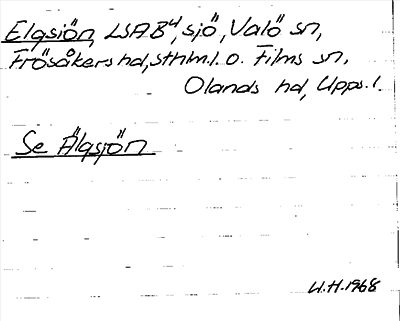 Elgsjön, LSAB4, sjö, Valö sn,
Frösåkers hd, sthlm.l. o. Films sn,
Olands hd, Upps.l.
Se Älgsjön
U.H.1968